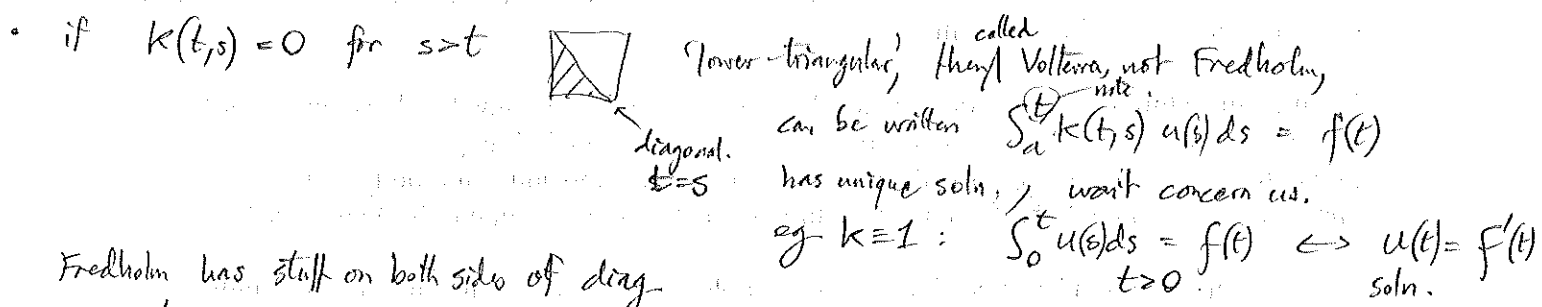 • if k(t,s) = 0 for s>t 'lower-triangular', then called Volterra, not Fredholm,
note.
can be written ∫_a^t k(t,s) u(s) ds = f(t)
diagonal.
t=s
has unique soln., won't concern us.
eg k≡1 : ∫_0^t u(s)ds = f(t) ↔ u(t) = f'(t)
t>0 soln.
Fredholm has stuff on both sides of diag